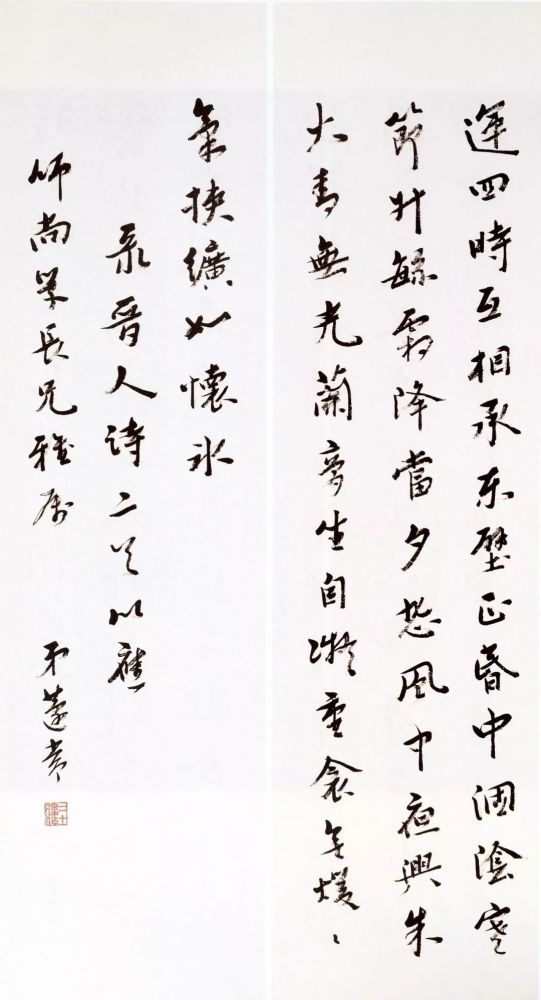 運四時互相承東壁正昏中涸陰寒
節升繁霜降當夕悲風中夜興朱
火青無光蘭膏坐自凝重衾無煖
氣挾纊如懷冰
录晋人诗二首以應
师尚学長兄雅属 弟蘧常